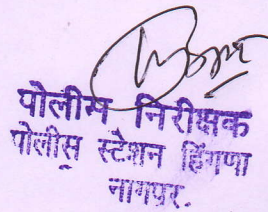 पोलीस निरीक्षक
पोलीस स्टेशन हिंगणा
नागपूर.